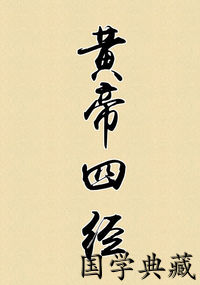 黄帝四经
国学典藏